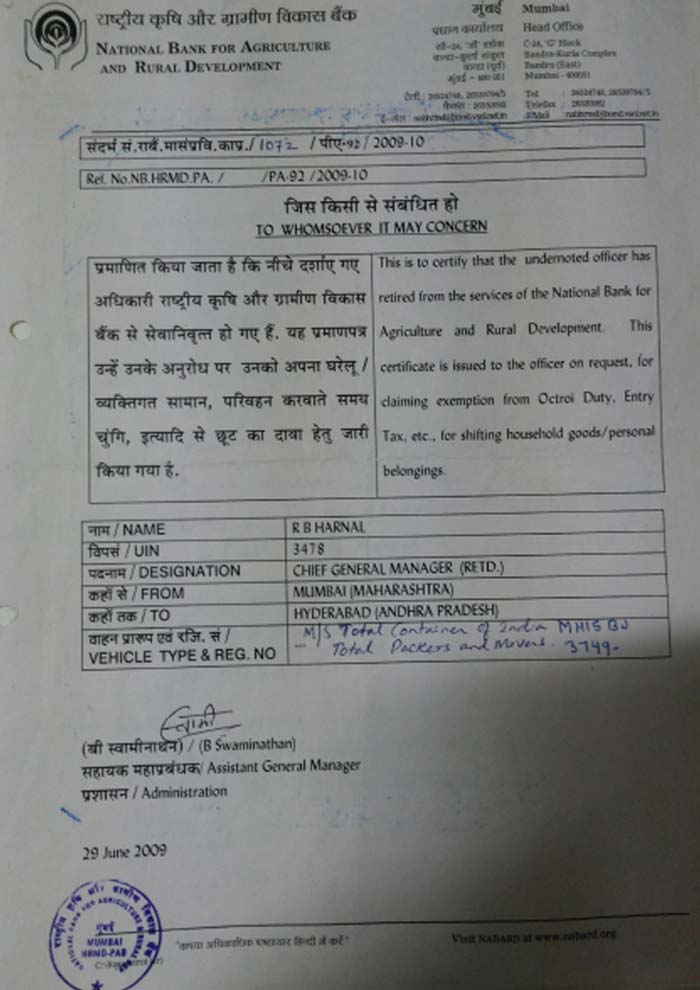 राष्ट्रीय कृषि और ग्रामीण विकास बैंक
NATIONAL BANK FOR AGRICULTURE
AND RURAL DEVELOPMENT
मुंबई
प्रधान कार्यालय
सी-24, 'जी' ब्लॉक
बान्द्रा-कुर्ला संकुल
बान्द्रा (पूर्व)
मुंबई - 400 051
Mumbai
Head Office
C-24, 'G' Block
Bandra-Kurla Complex
Bandra (East)
Mumbai - 400051
संदर्भ सं.राबैं.मासंप्रवि.काप्र./1072 / पीए-92 / 2009-10
Ref. No.NB.HRMD.PA. / /PA-92 /2009-10
जिस किसी से संबंधित हो
TO WHOMSOEVER IT MAY CONCERN
प्रमाणित किया जाता है कि नीचे दर्शाए गए
अधिकारी राष्ट्रीय कृषि और ग्रामीण विकास
बैंक से सेवानिवृत्त हो गए हैं. यह प्रमाणपत्र
उन्हें उनके अनुरोध पर उनको अपना घरेलू /
व्यक्तिगत सामान, परिवहन करवाते समय
चुंगि, इत्यादि से छूट का दावा हेतु जारी
किया गया है.
This is to certify that the undernoted officer has
retired from the services of the National Bank for
Agriculture and Rural Development. This
certificate is issued to the officer on request, for
claiming exemption from Octroi Duty, Entry
Tax, etc., for shifting household goods/personal
belongings.
नाम / NAME R B HARNAL
विपसं / UIN 3478
पदनाम / DESIGNATION CHIEF GENERAL MANAGER (RETD.)
कहाँ से / FROM MUMBAI (MAHARASHTRA)
कहाँ तक / TO HYDERABAD (ANDHRA PRADESH)
वाहन प्रारूप एवं रजि. सं /
VEHICLE TYPE & REG. NO
M/S Total Container of India MH15 BJ
Total Packers and Movers. 3749.
स्वामी
(बी स्वामीनाथन) / (B Swaminathan)
सहायक महाप्रबंधक/ Assistant General Manager
प्रशासन / Administration
29 June 2009
मुंबई
MUMBAI
HRMD-PAB
"कृपया अधिकाधिक पत्राचार हिन्दी में करें"
Visit NABARD at www.nabard.org